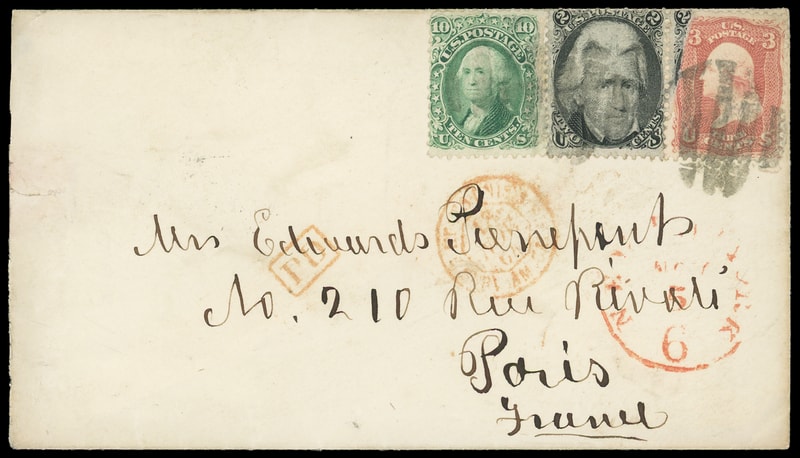 10 10
U.S. POSTAGE
TEN CENTS
U S
2 2
U.S. POSTAGE
TWO CENTS
U S
3 3
U.S.
POSTAGE
U S
Mrs Edwards Pierrepont
No. 210 Rue Rivoli
Paris
France
PD
NEW YORK
6